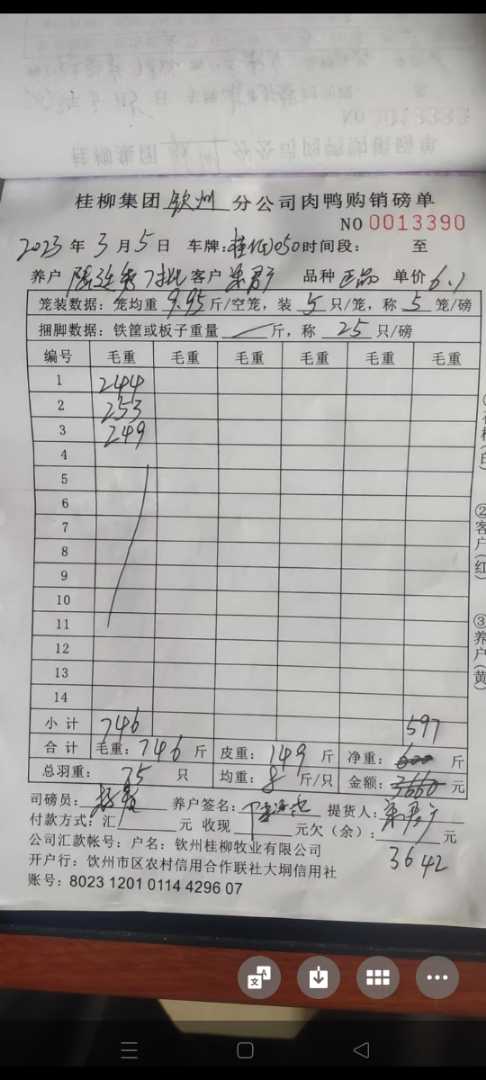 桂柳集团钦州分公司肉鸭购销磅单
NO 0013390
2023年3月5日 车牌:桂 050 时间段: 至
养户 客户 品种 正品 单价 6.1
笼装数据:笼均重 9.95 斤/空笼,装 5 只/笼,称 5 笼/磅
捆脚数据:铁筐或板子重量 斤,称 25 只/磅
编号 毛重 毛重 毛重 毛重 毛重 毛重
1 244
2 253
3 249
4
5
6
7
8
9
10
11
12
13
14
小计 746 597
合计 毛重:746 斤 皮重:149 斤 净重:600 斤
总羽重: 75 只 均重:8 斤/只 金额:3660 元
司磅员: 养户签名: 提货人:
付款方式:汇 元 收现 元欠(余): 元
3642
公司汇款帐号:户名:钦州桂柳牧业有限公司
开户行:钦州市区农村信用合作联社大垌信用社
账号:8023 1201 0114 4296 07
②客户(红)
③养户(黄)